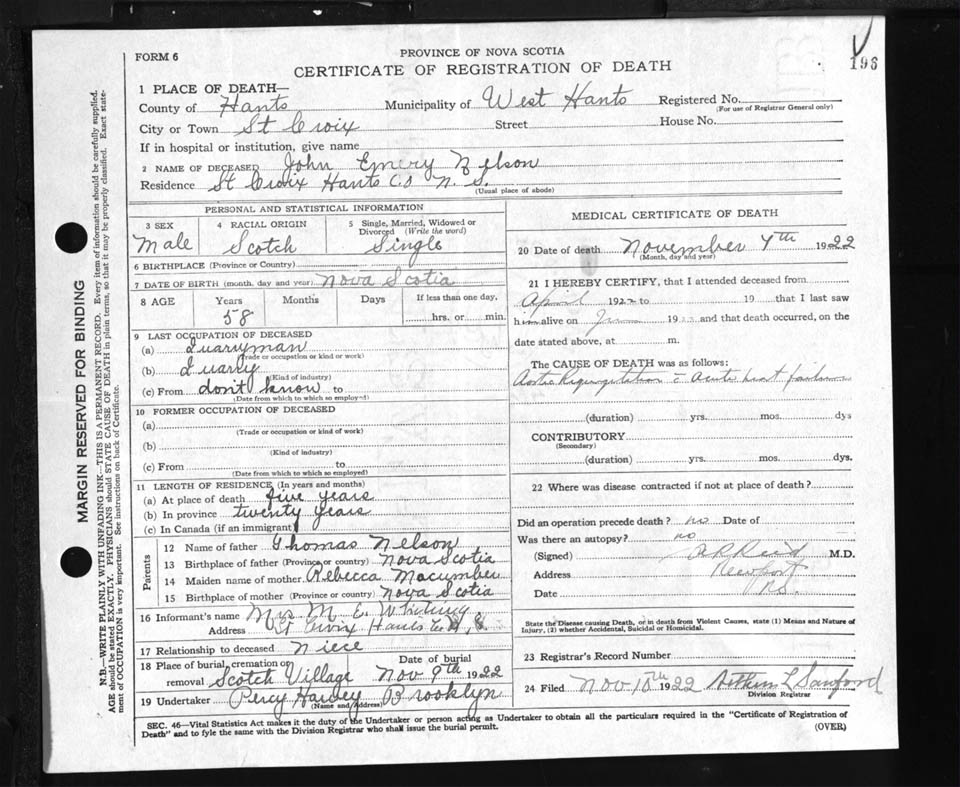 FORM 6
PROVINCE OF NOVA SCOTIA
CERTIFICATE OF REGISTRATION OF DEATH
196
1 PLACE OF DEATH—
County of Hants Municipality of West Hants Registered No.
(For use of Registrar General only)
City or Town St Croix Street House No.
If in hospital or institution, give name
2 NAME OF DECEASED John Emery Nelson
Residence St Croix Hants Co N. S.
(Usual place of abode)
PERSONAL AND STATISTICAL INFORMATION
3 SEX Male
4 RACIAL ORIGIN Scotch
5 Single, Married, Widowed or Divorced (Write the word) Single
6 BIRTHPLACE (Province or Country)
7 DATE OF BIRTH (month, day and year) Nova Scotia
8 AGE Years Months Days If less than one day,
58 hrs. or min.
9 LAST OCCUPATION OF DECEASED
(a) Quarryman
(Trade or occupation or kind or work)
(b) Quarry
(Kind of industry)
(c) From don't know to
(Date from which to which so employed)
10 FORMER OCCUPATION OF DECEASED
(a)
(Trade or occupation or kind of work)
(b)
(Kind of industry)
(c) From to
(Date from which to which so employed)
11 LENGTH OF RESIDENCE (In years and months)
(a) At place of death five years
(b) In province twenty years
(c) In Canada (if an immigrant)
Parents
12 Name of father Thomas Nelson
13 Birthplace of father (Province or country) Nova Scotia
14 Maiden name of mother Rebecca Macumber
15 Birthplace of mother (Province or country) Nova Scotia
16 Informant's name Mrs M. E. Whiting
Address St Croix Hants Co N. S.
17 Relationship to deceased Niece
18 Place of burial, cremation or removal Scotch Village Date of burial Nov 9th 1922
19 Undertaker Percy Harvey Brooklyn
(Name and Address)
MEDICAL CERTIFICATE OF DEATH
20 Date of death November 7th 1922
(Month, day and year)
21 I HEREBY CERTIFY, that I attended deceased from
April 1922 to 19 that I last saw
him alive on 1922 and that death occurred, on the
date stated above, at m.
The CAUSE OF DEATH was as follows:
Aortic Regurgitation Acute heart failure
(duration) yrs. mos. dys
CONTRIBUTORY
(Secondary)
(duration) yrs. mos. dys.
22 Where was disease contracted if not at place of death?
Did an operation precede death? no Date of
Was there an autopsy? no
(Signed) M.D.
Address Newport
Date
State the Disease causing Death, or in death from Violent Causes, state (1) Means and Nature of
Injury, (2) whether Accidental, Suicidal or Homicidal.
23 Registrar's Record Number
24 Filed Nov 10th 1922 Arthur L Sanford
Division Registrar
SEC. 46—Vital Statistics Act makes it the duty of the Undertaker or person acting as Undertaker to obtain all the particulars required in the "Certificate of Registration of
Death" and to fyle the same with the Division Registrar who shall issue the burial permit.
(OVER)
MARGIN RESERVED FOR BINDING
N.B.—WRITE PLAINLY WITH UNFADING INK—THIS IS A PERMANENT RECORD. Every item of information should be carefully supplied.
AGE should be stated EXACTLY. PHYSICIANS should STATE CAUSE OF DEATH in plain terms, so that it may be properly classified. Exact state-
ment of OCCUPATION is very important. See instructions on back of Certificate.